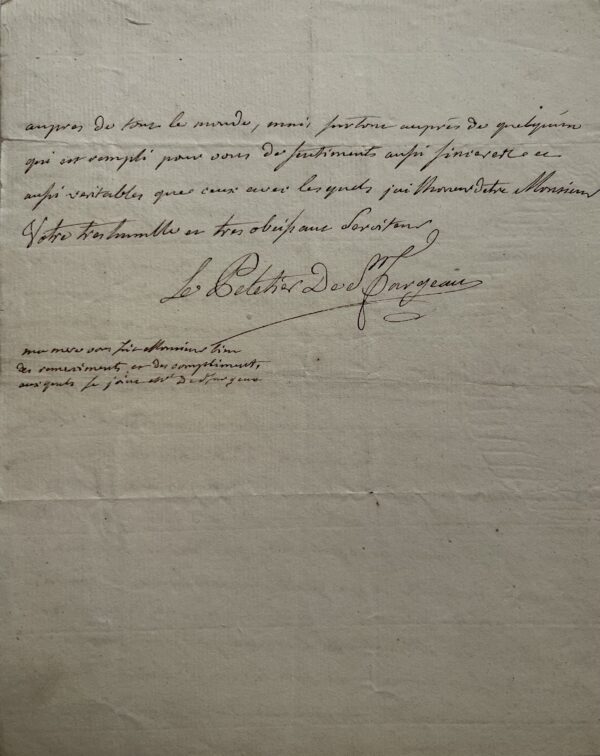 aupres de tout le monde, mais surtout auprés de quelqu'un
qui est rempli pour vous de sentiments aussi sinceres et
aussi veritables que ceux avec lesquels jai lhonneur detre Monsieur
Votre tres humble et tres obeissant Serviteur
Le Peletier De St Fargeau
ma mere vous fait Monsieur bien
des remerciments et des compliments,
auxquels se joint Mr De St fargeau